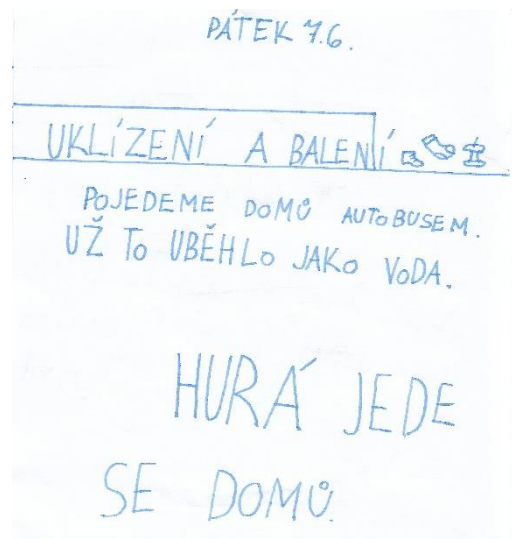 PÁTEK 7.6.
UKLÍZENÍ A BALENÍ
POJEDEME DOMŮ AUTOBUSEM.
UŽ TO UBĚHLO JAKO VODA.
HURÁ JEDE
SE DOMŮ.